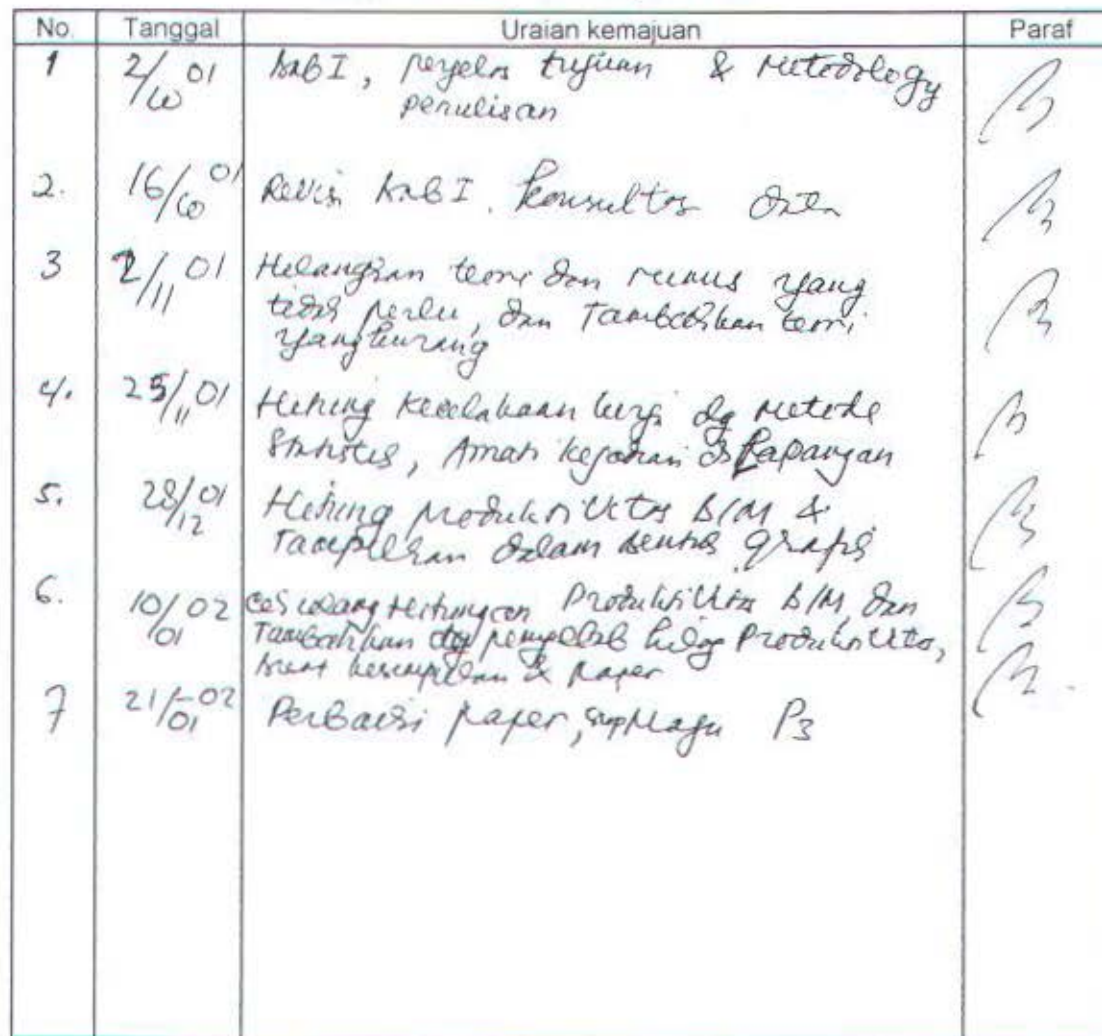 No. Tanggal Uraian kemajuan Paraf
1 2/10 01 BAB I, perjelas tujuan & metodology
penulisan
2. 16/10 01 Revisi BAB I. Konsultasi data
3 2/11 01 Hilangkan teori dan rumus yang
tidak perlu, dan Tambahkan teori
yang kurang
4. 25/11 01 Hitung kecelakaan kerja dg metode
Statistik, Amati kejadian di Lapangan
5. 28/12 01 Hitung produktivitas B/M &
Tampilkan dalam bentuk grafis
6. 10/01 02 Cek ulang Hitungan Produktivitas B/M, dan
Tambahkan dg penyebab Produktivitas,
buat kesimpulan & paper
7 21/01 -02 Perbaiki paper, maju P3